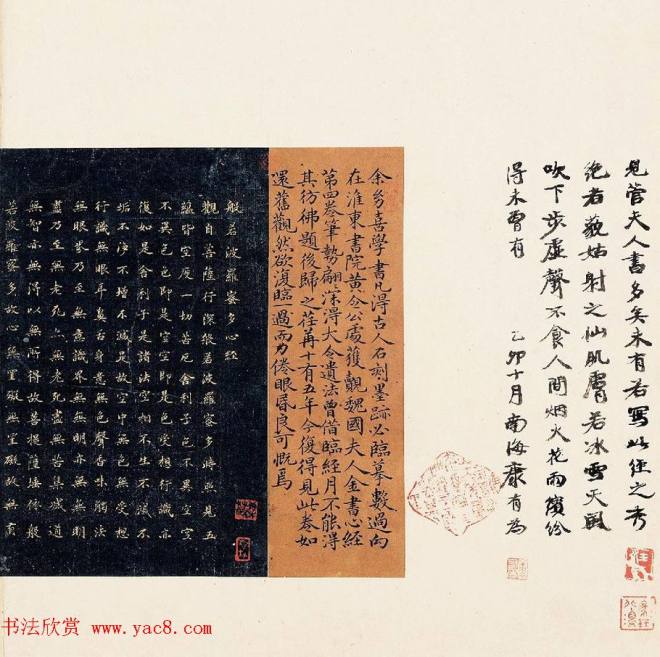 見管夫人書多矣未有若寫此經之秀
絕者藐姑射之仙肌膚若冰雪天風
吹下步虛聲不食人間烟火花雨繽紛
得未曾有
乙卯十月南海康有為
余多喜學書凡得古人石刻墨跡必臨摹數過向
在淮東書院黃仝公處獲觀魏國夫人金書心經
第四卷筆勢翩深得大令遺法曾借臨經月不能得
其彷彿題後歸之荏苒十有五年今復得見此卷如
還舊觀然欲復臨一過而力倦眼昏良可慨焉
般若波羅蜜多心經
觀自在菩薩行深般若波羅蜜多時照見五
蘊皆空度一切苦厄舍利子色不異空空
不異色色即是空空即是色受想行識亦
復如是舍利子是諸法空相不生不滅不
垢不淨不增不減是故空中無色無受想
行識無眼耳鼻舌身意無色聲香味觸法
無眼界乃至無意識界無無明亦無無明
盡乃至無老死亦無老死盡無苦集滅道
無智亦無得以無所得故菩提薩埵依般
若波羅蜜多故心無罣礙無罣礙故無有
书法欣赏 www.yac8.com